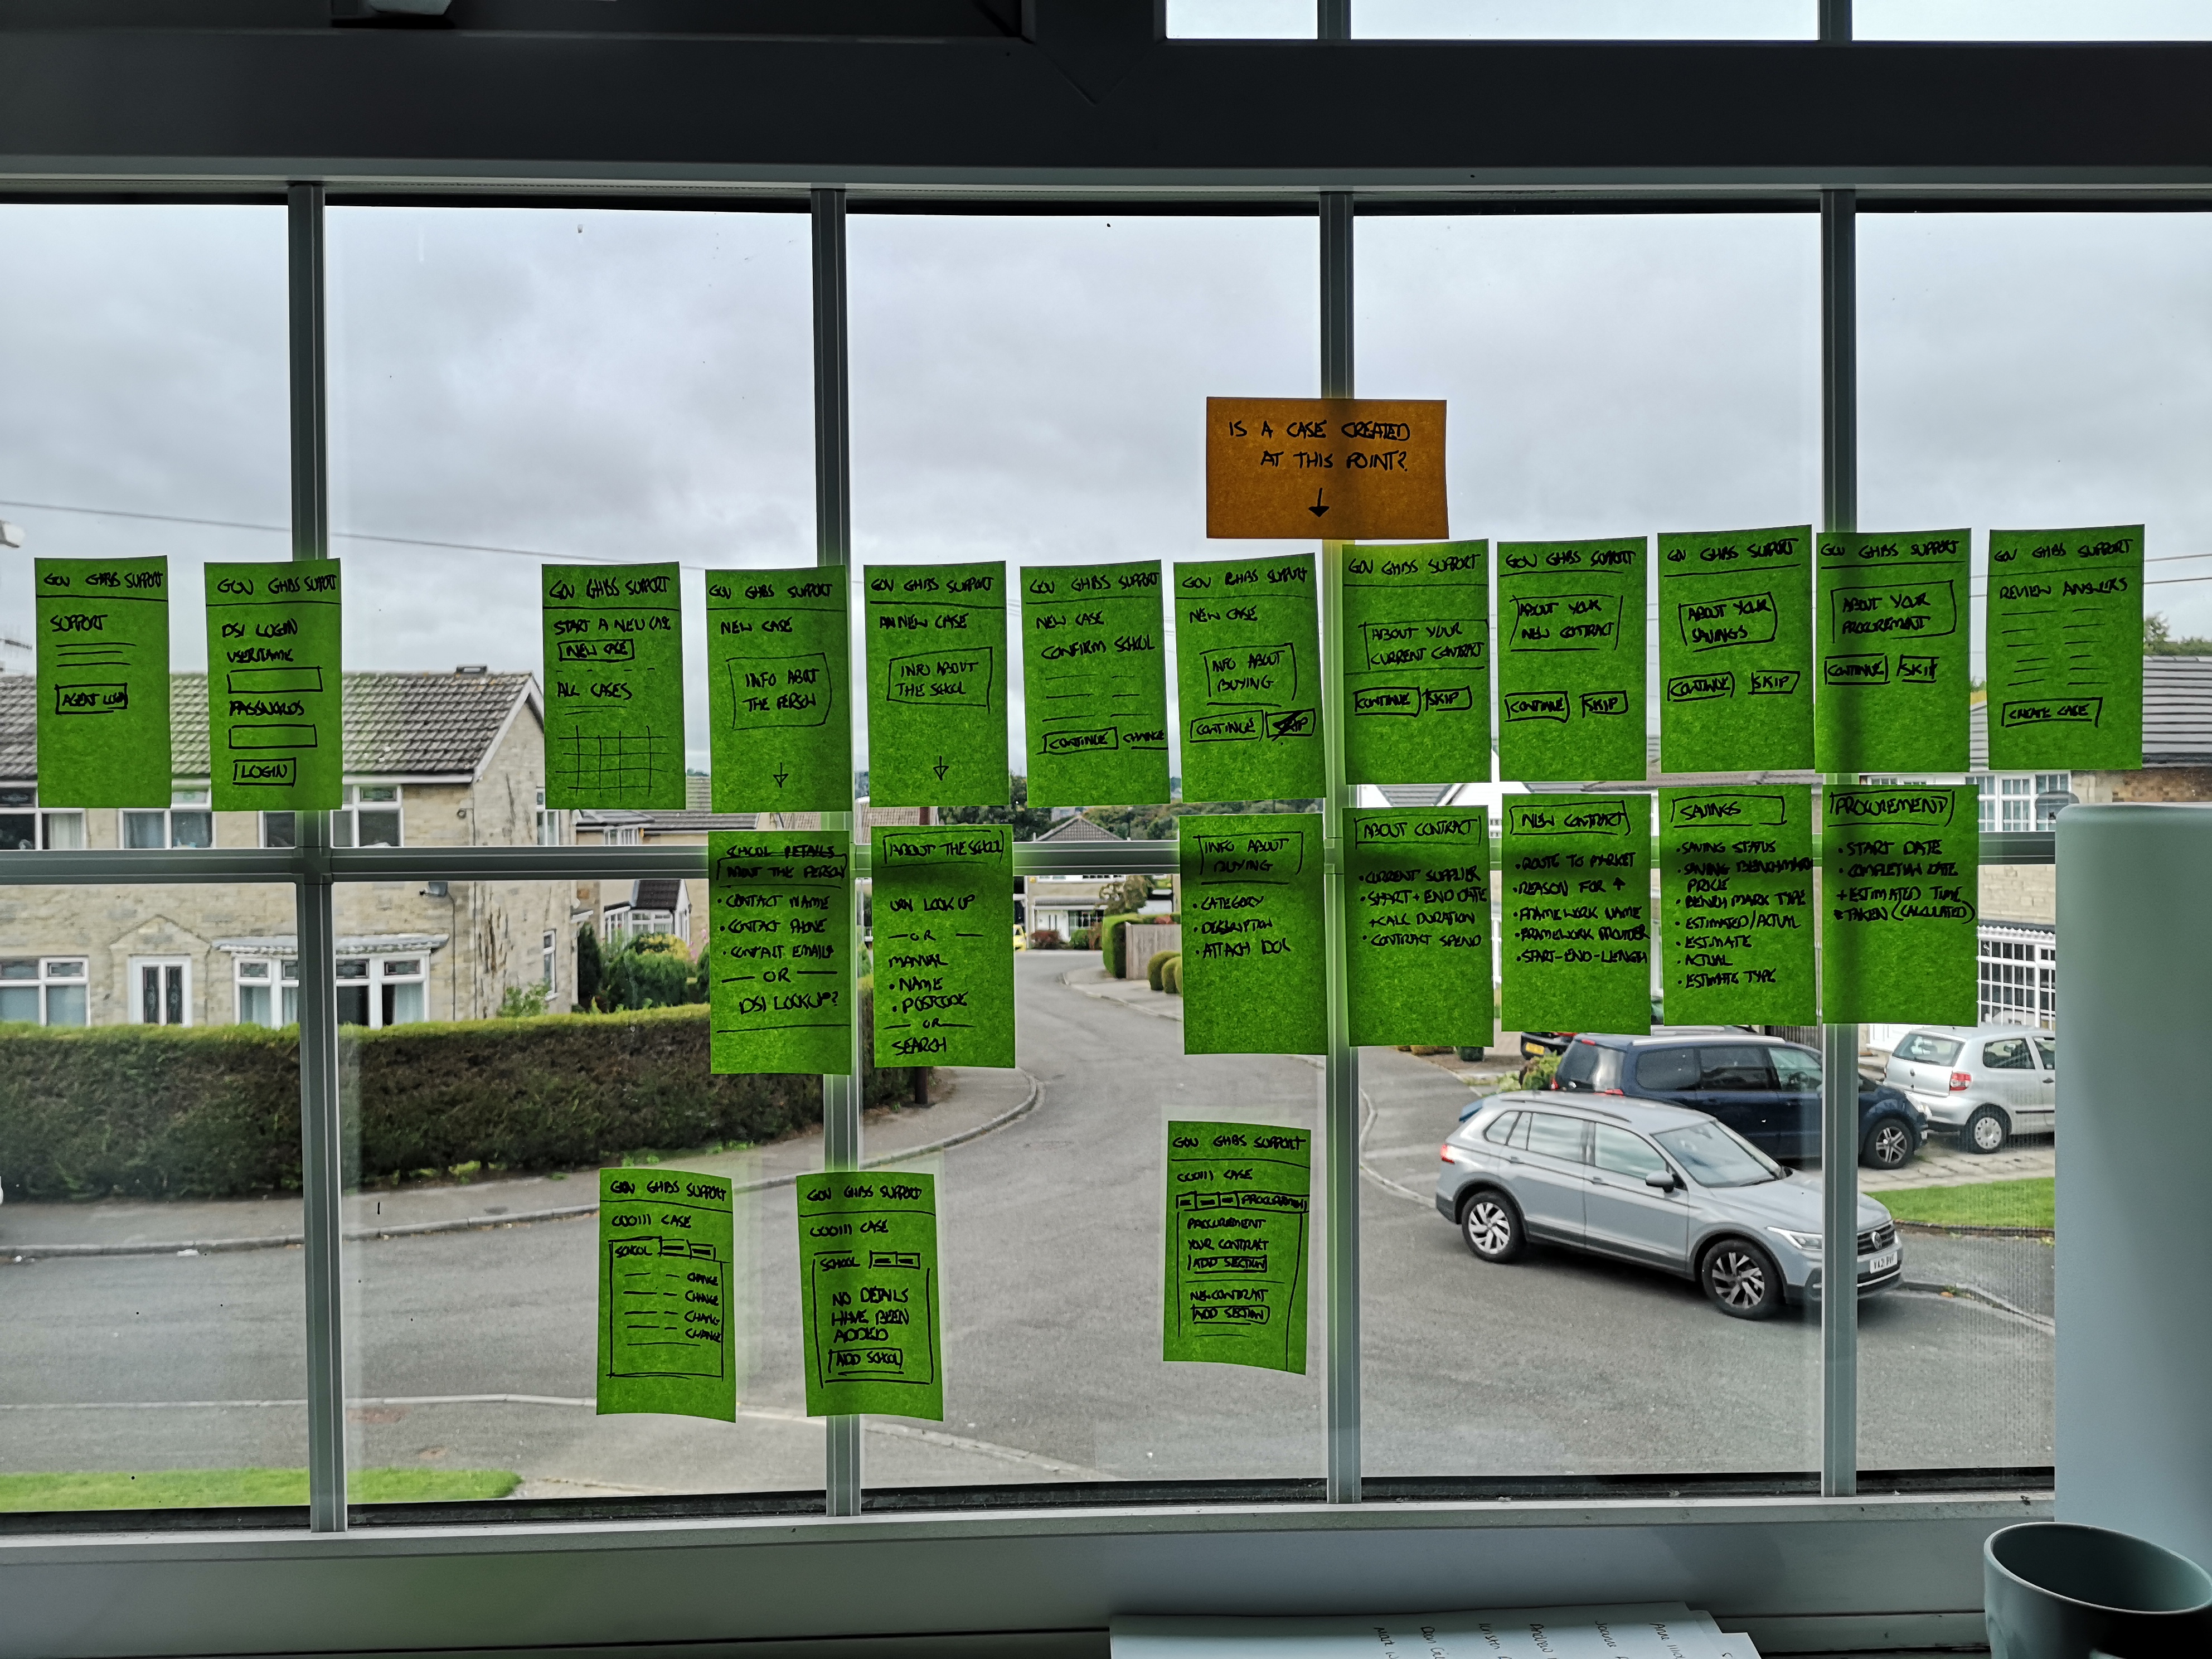 IS A CASE CREATED
AT THIS POINT?
GOV GHBS SUPPORT
SUPPORT
AGENT LOGIN
GOV GHBS SUPPORT
DSI LOGIN
USERNAME
PASSWORDS
LOGIN
GOV GHBS SUPPORT
START A NEW CASE
NEW CASE
ALL CASES
GOV GHBS SUPPORT
NEW CASE
INFO ABOUT
THE PERSON
GOV GHBS SUPPORT
NEW CASE
INFO ABOUT
THE SCHOOL
GOV GHBS SUPPORT
NEW CASE
CONFIRM SCHOOL
CONTINUE CHANGE
GOV GHBS SUPPORT
NEW CASE
INFO ABOUT
BUYING
CONTINUE SKIP
GOV GHBS SUPPORT
ABOUT YOUR
CURRENT CONTRACT
CONTINUE SKIP
GOV GHBS SUPPORT
ABOUT YOUR
NEW CONTRACT
CONTINUE SKIP
GOV GHBS SUPPORT
ABOUT YOUR
SAVINGS
CONTINUE SKIP
GOV GHBS SUPPORT
ABOUT YOUR
PROCUREMENT
CONTINUE SKIP
GOV GHBS SUPPORT
REVIEW ANSWERS
CREATE CASE
SCHOOL DETAILS
ABOUT THE PERSON
• CONTACT NAME
• CONTACT PHONE
• CONTACT EMAIL
— OR —
DSI LOOKUP?
ABOUT THE SCHOOL
URN LOOKUP
— OR —
MANUAL
• NAME
• POSTCODE
— OR —
SEARCH
INFO ABOUT
BUYING
• CATEGORY
• DESCRIPTION
• ATTACH DOC
ABOUT CONTRACT
• CURRENT SUPPLIER
• START + END DATE
+ CALC DURATION
• CONTRACT SPEND
NEW CONTRACT
• ROUTE TO MARKET
• REASON FOR ↑
• FRAMEWORK NAME
• FRAMEWORK PROVIDER
• START-END-LENGTH
SAVINGS
• SAVING STATUS
• SAVING BENCHMARK
PRICE
• BENCH MARK TYPE
• ESTIMATED/ACTUAL
• ESTIMATE
• ACTUAL
• ESTIMATE TYPE
PROCUREMENT
• START DATE
• COMPLETION DATE
+ ESTIMATED TIME
TAKEN (CALCULATED)
GOV GHBS SUPPORT
000111 CASE
SCHOOL
CHANGE
CHANGE
CHANGE
CHANGE
GOV GHBS SUPPORT
000111 CASE
SCHOOL
NO DETAILS
HAVE BEEN
ADDED
ADD SCHOOL
GOV GHBS SUPPORT
000111 CASE
PROCUREMENT
PROCUREMENT
YOUR CONTRACT
ADD SECTION
NEW CONTRACT
ADD SECTION